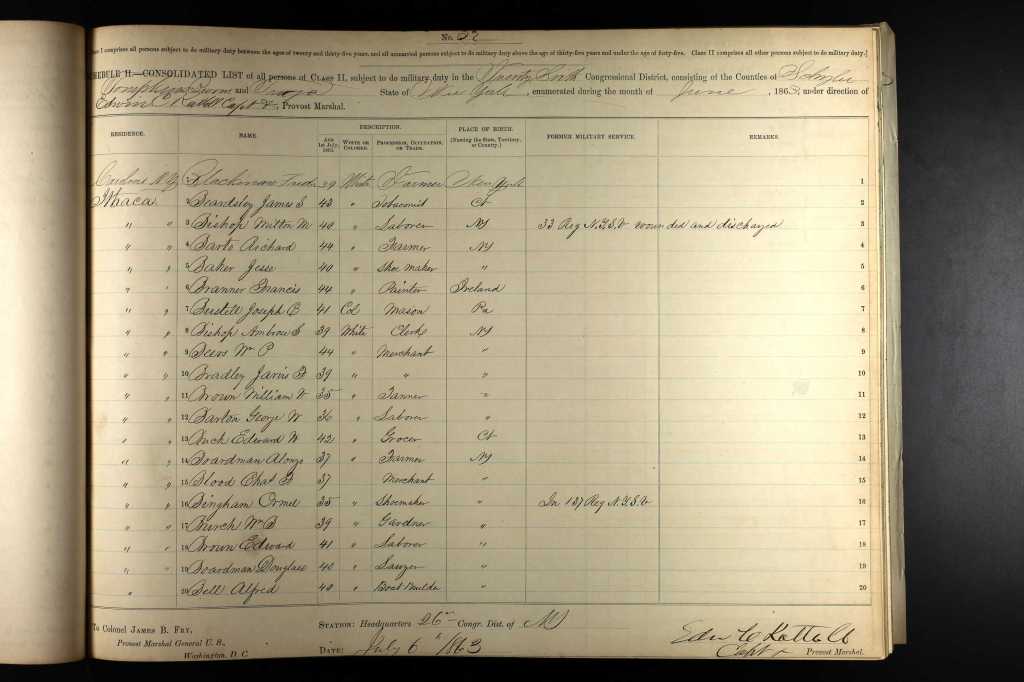 No. 37
Class I comprises all persons subject to do military duty between the ages of twenty and thirty-five years, and all unmarried persons subject to do military duty above the age of thirty-five years and under the age of forty-five. Class II comprises all other persons subject to do military duty.]
SCHEDULE II.—CONSOLIDATED LIST of all persons of CLASS II, subject to military duty in the Twenty Sixth Congressional District, consisting of the Counties of Schuyler
Tompkins, and Tioga State of New York, enumerated during the month of June, 1863, under direction of
Edwin C Kattell Capt &, Provost Marshal.
RESIDENCE. NAME. DESCRIPTION. PLACE OF BIRTH. FORMER MILITARY SERVICE. REMARKS.
AGE 1st July, 1863. WHITE OR COLORED. PROFESSION, OCCUPATION, OR TRADE. (Naming the State, Territory, or Country.)
Caroline N.Y. 1 Blackman Fred. 39 White Farmer New York 1
Ithaca 2 Beardsley James S 43 " Tobaconist Ct 2
" " 3 Bishop Milton M 40 " Laborer NY 33 Reg N.Y.S.V wounded and discharged 3
" " 4 Barto Richard 44 " Farmer NY 4
" " 5 Baker Jesse 40 " Shoe Maker " 5
" " 6 Branner Francis 44 " Painter Ireland 6
" " 7 Joseph 41 Col Mason Pa 7
" " 8 Bishop Ambrose S 39 White Clerk NY 8
" " 9 Beers Wm P 44 " Merchant " 9
" " 10 Bradley Jarvis 39 " " " 10
" " 11 Brown William 35 " Tanner " 11
" " 12 Barton George W 36 " Laborer " 12
" " 13 Edward W 42 " Grocer Ct 13
" " 14 Boardman Alonzo 37 " Farmer NY 14
" " 15 Blood Chas 37 Merchant " 15
" " 16 Bingham Ormel 35 " Shoemaker " In 137 Reg N.Y.S.V 16
" " 17 Burch Wm B 39 " Gardner " 17
" " 18 Brown Edward 41 " Laborer " 18
" " 19 Boardman Douglass 40 " Lawyer " 19
" 20 Bell Alfred 40 " Boat Builder " 20
To Colonel JAMES B. FRY,
Provost Marshal General U. S.,
Washington, D. C.
STATION: Headquarters 26th Congr. Dist. of NY
DATE: July 6th 1863
Edw C Kattell
Capt & Provost Marshal.